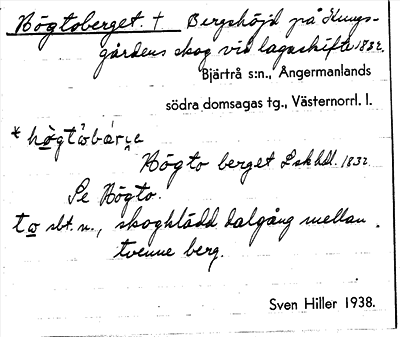 Högtoberget. † Bergshöjd på Kungs-
gårdens skog vid lagaskifte 1832.
Bjärtrå s:n., Ångermanlands
södra domsagas tg., Västernorrl. l.
Högto berget Lskhdl. 1832
Se Högto.
to sbt. n., skogklädd dalgång mellan
tvenne berg.
Sven Hiller 1938.